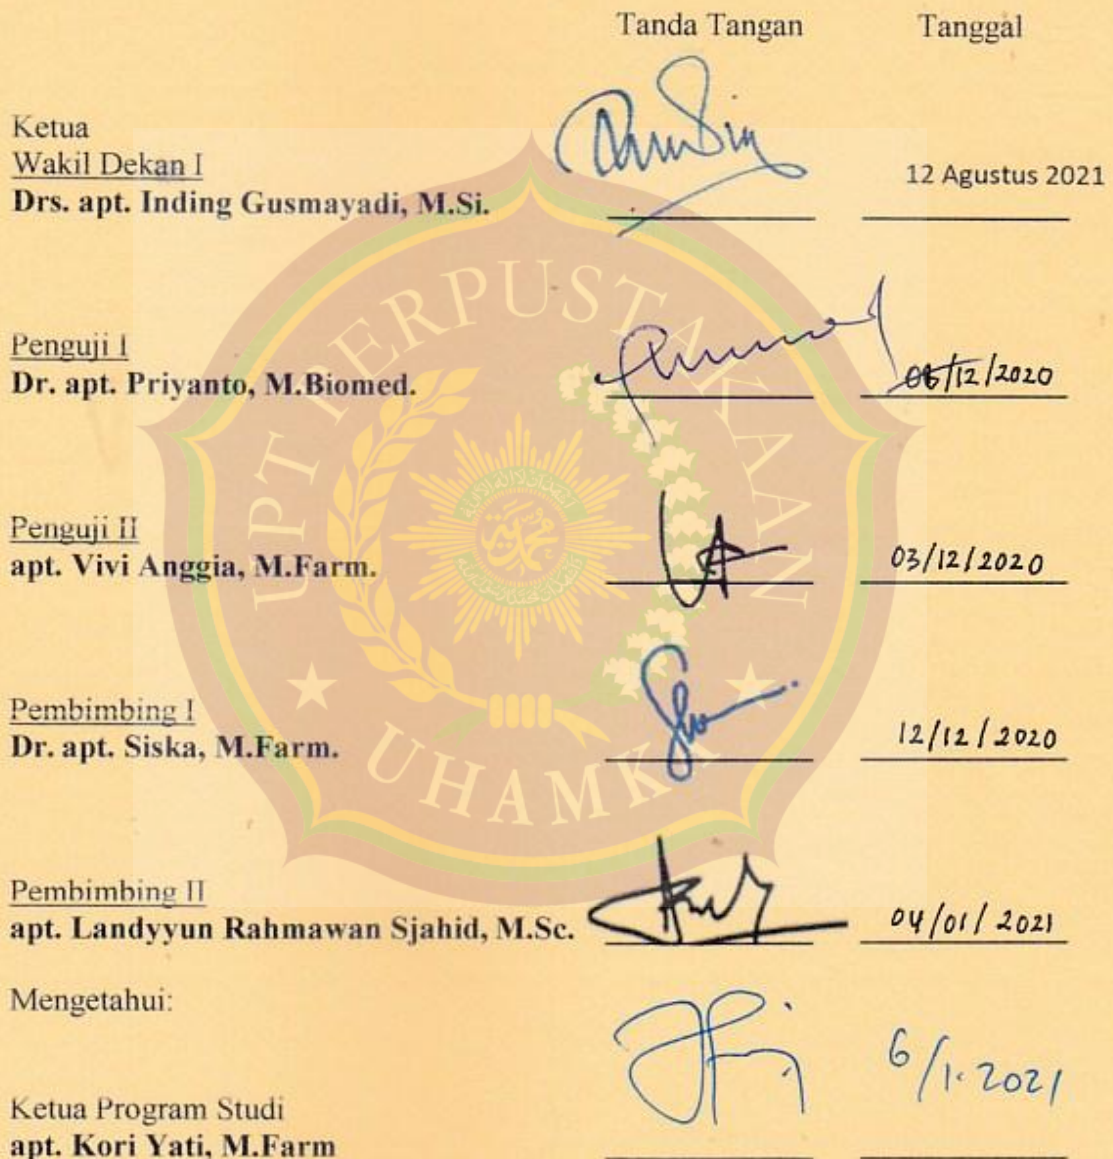 Tanda Tangan Tanggal
Ketua
Wakil Dekan I
Drs. apt. Inding Gusmayadi, M.Si. 12 Agustus 2021
Penguji I
Dr. apt. Priyanto, M.Biomed. 06/12/2020
Penguji II
apt. Vivi Anggia, M.Farm. 03/12/2020
Pembimbing I
Dr. apt. Siska, M.Farm. 12/12/2020
Pembimbing II
apt. Landyyun Rahmawan Sjahid, M.Sc. 04/01/2021
Mengetahui:
6/1.2021
Ketua Program Studi
apt. Kori Yati, M.Farm
UPT PERPUSTAKAAN
UHAMKA